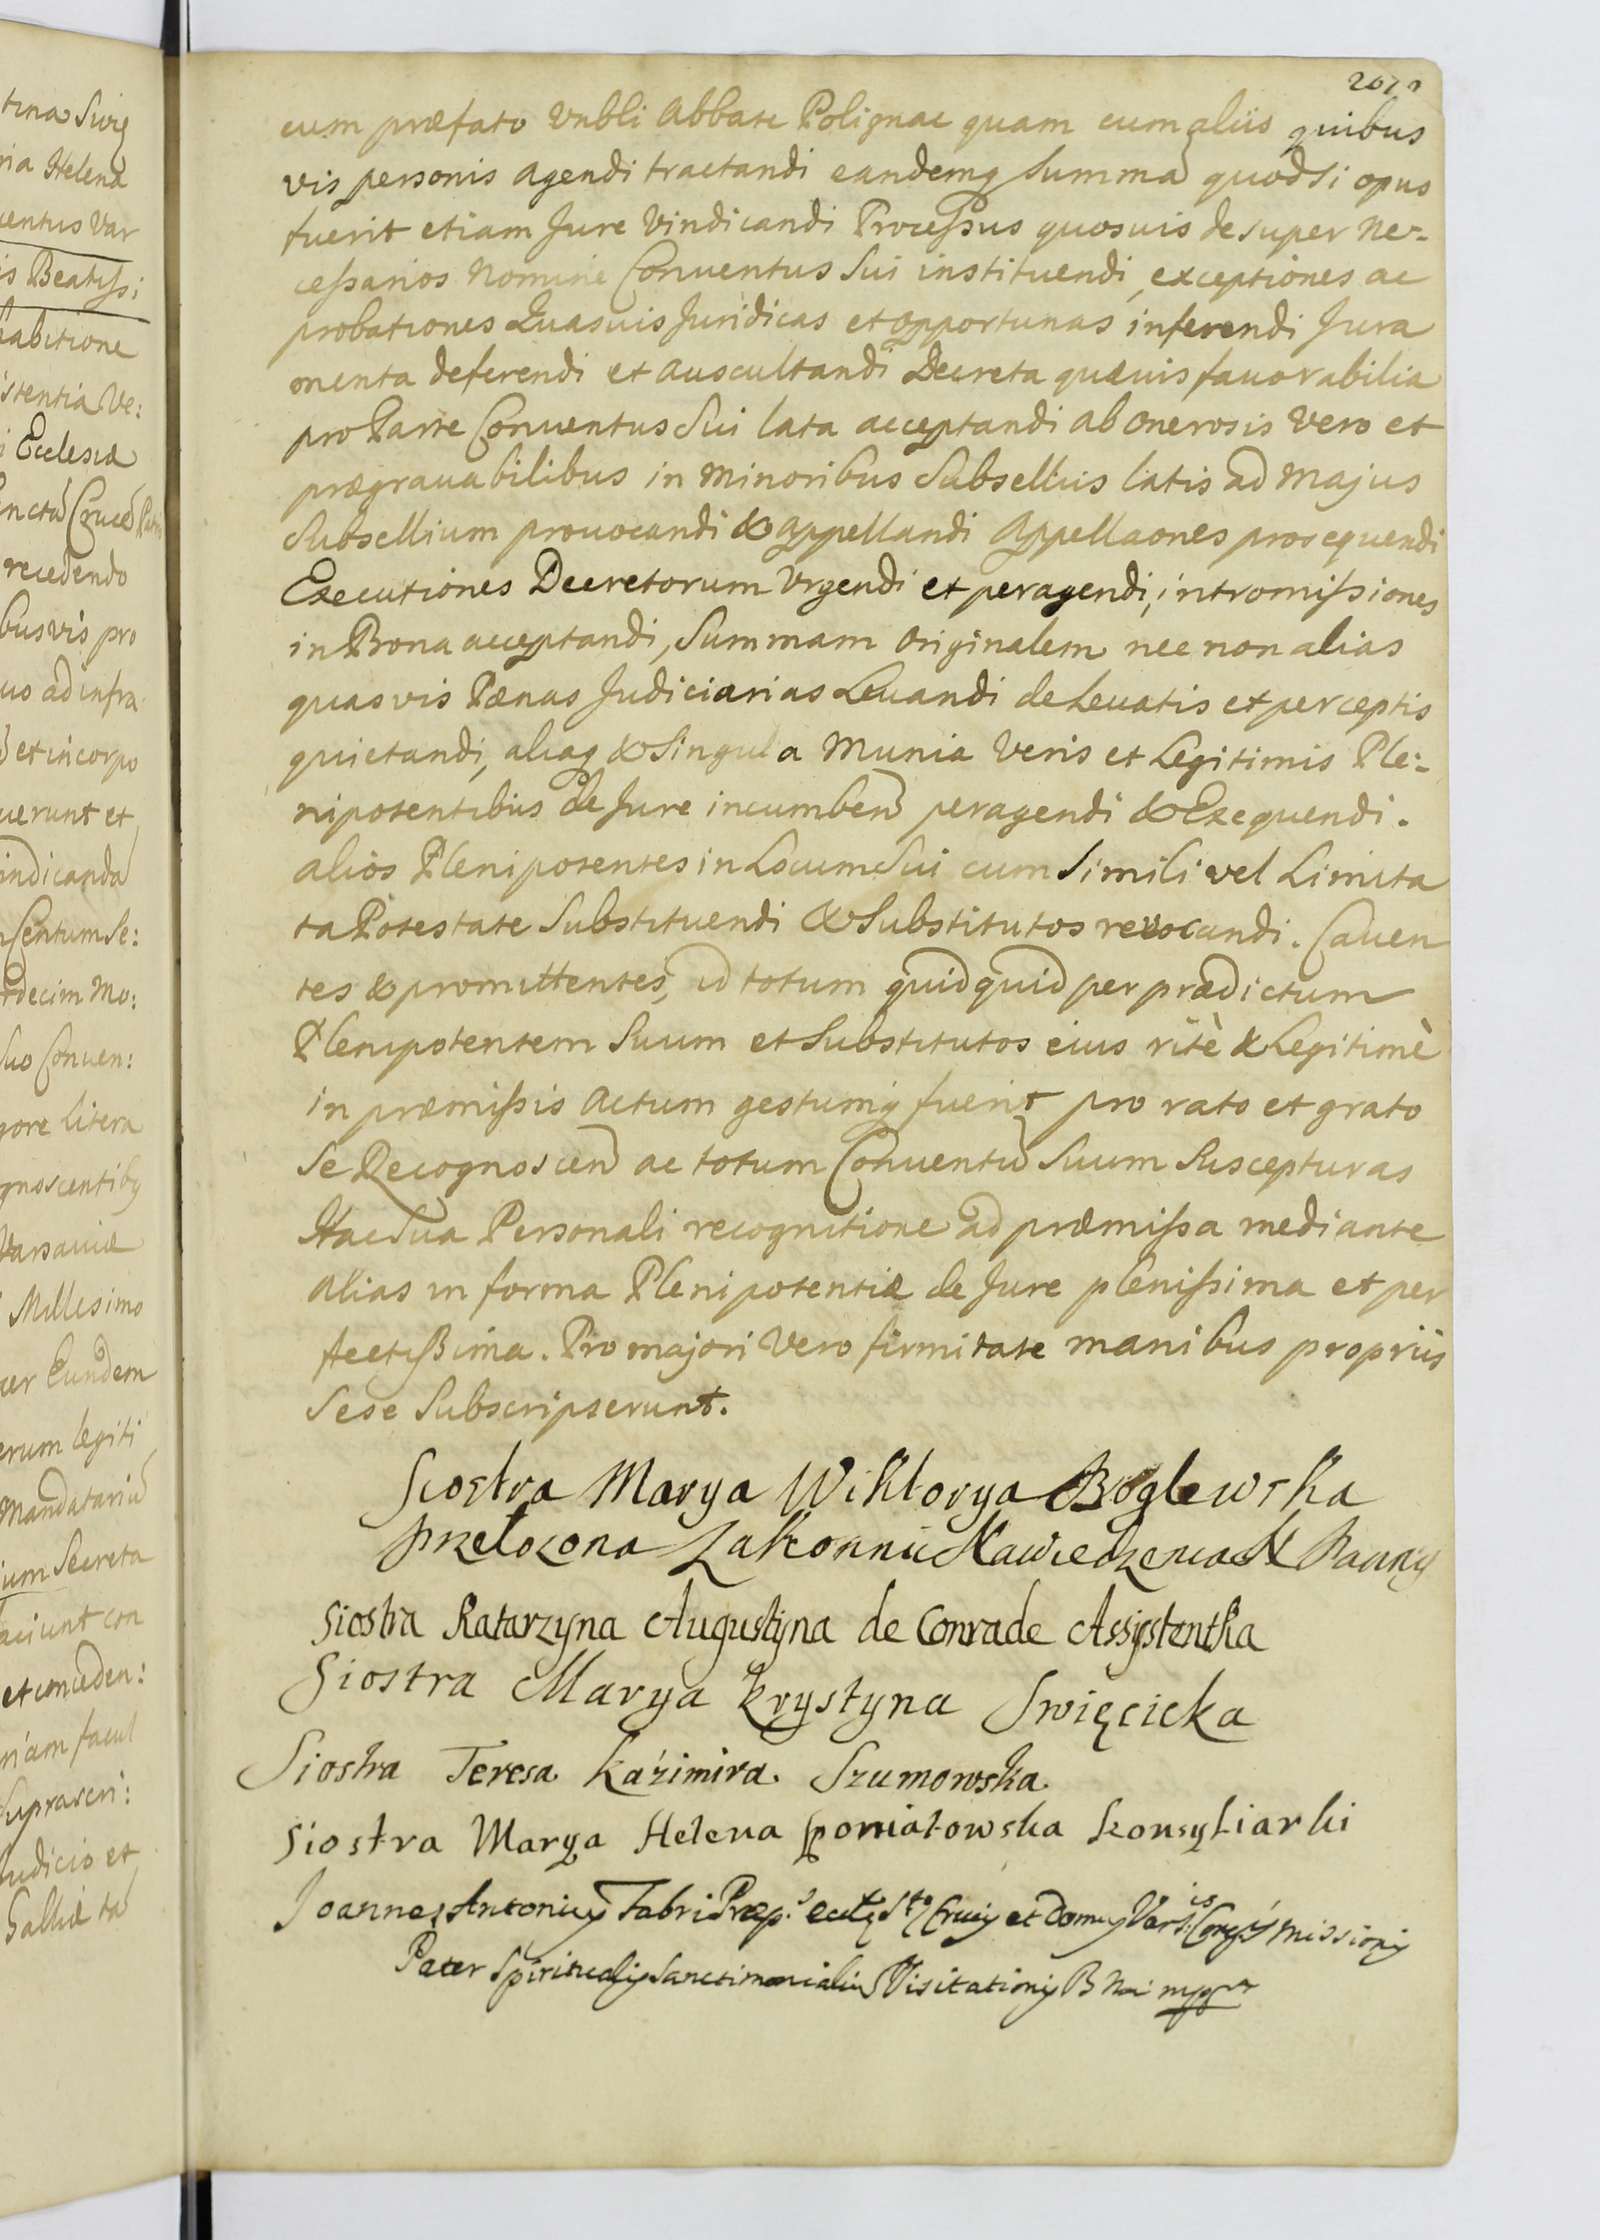 tina Swię
ria Helena
uentus Var
is Beatiss:
habitione
istentia Ve:
i Ecclesiæ
recedendo
busvis pro
uo ad infra
et incorpo
uerunt et
indicanda
Centum Se:
rdecim Mo:
Suo Conuen:
gore litera
gnoscentiby
Varsauiæ
Millesimo
er Eundem
erum legiti
Mandatariu
ium Secreta
aciunt con
et conceden:
riam facul
Suprascri:
udicio et
Galliæ ta
cum præfato Vnbli Abbate Polignac quam cum aliis quibus
vis personis agendi tractandi eandemq Summa quodsi opus
fuerit etiam Jure Vindicandi Processus quosuis desuper Ne-
cessarios Nomine Conuentus Sui instituendi, exceptiones ac
probationes Quasuis Juridicas et opportunas inferendi Jura
menta deferendi et auscultandi Decreta quæuis fauorabilia
pro Parte Conuentus Sui lata acceptandi ab Onerosis Vero et
prægrauabilibus in Minoribus Subselliis latis ad Majus
Subsellium prouocandi & appellandi Appellaones prosequendi
Executiones Decretorum Vrgendi et peragendi, intromissiones
in Bona acceptandi, Summam Originalem nec non alias
quasvis Pænas Judiciarias Leuandi de Leuatis et perceptis
quietandi, aliaq & Singula Munia Veris et Legitimis Ple:
nipotentibus de Jure incumben peragendi & Exequendi.
alios Plenipotentes in Locum Sui cum Simili vel Limita
ta Potestate Substituendi & Substitutos revocandi. Cauen
tes & promittentes, id totum quidquid per prædictum
Plenipotentem Suum et Substitutos eius ritè & Legitimè
in præmissis actum gestumq fuerit pro rato et grato
Se Recognoscen ac totum Conuentu Suum Suscepturas
Hac Sua Personali recognitione ad præmissa mediante
Alias in forma Plenipotentiæ de Jure plenissima et per
fectissima. Pro majori Vero firmitate manibus propriis
Sese Subscripserunt.
Siostra Marya Wiktorya Boglewska
przelozona Zakonnic Nawiedzenia N Panny
Siostra Katarzyna Augustyna de Conrade Assystentka
Siostra Marya Krystyna Swięcicka
Siostra Teresa Kaźimira Szumowska
Siostra Marya Helena poniatowska Konsyliarki
Joannes Antoniuy Fabri Præp. eccłę Stæ Cruciy et Domuy Vars: Congis Missioniy
Pater Spiritualiy Sanctimonialiu Visitationiy B Mæ mppr